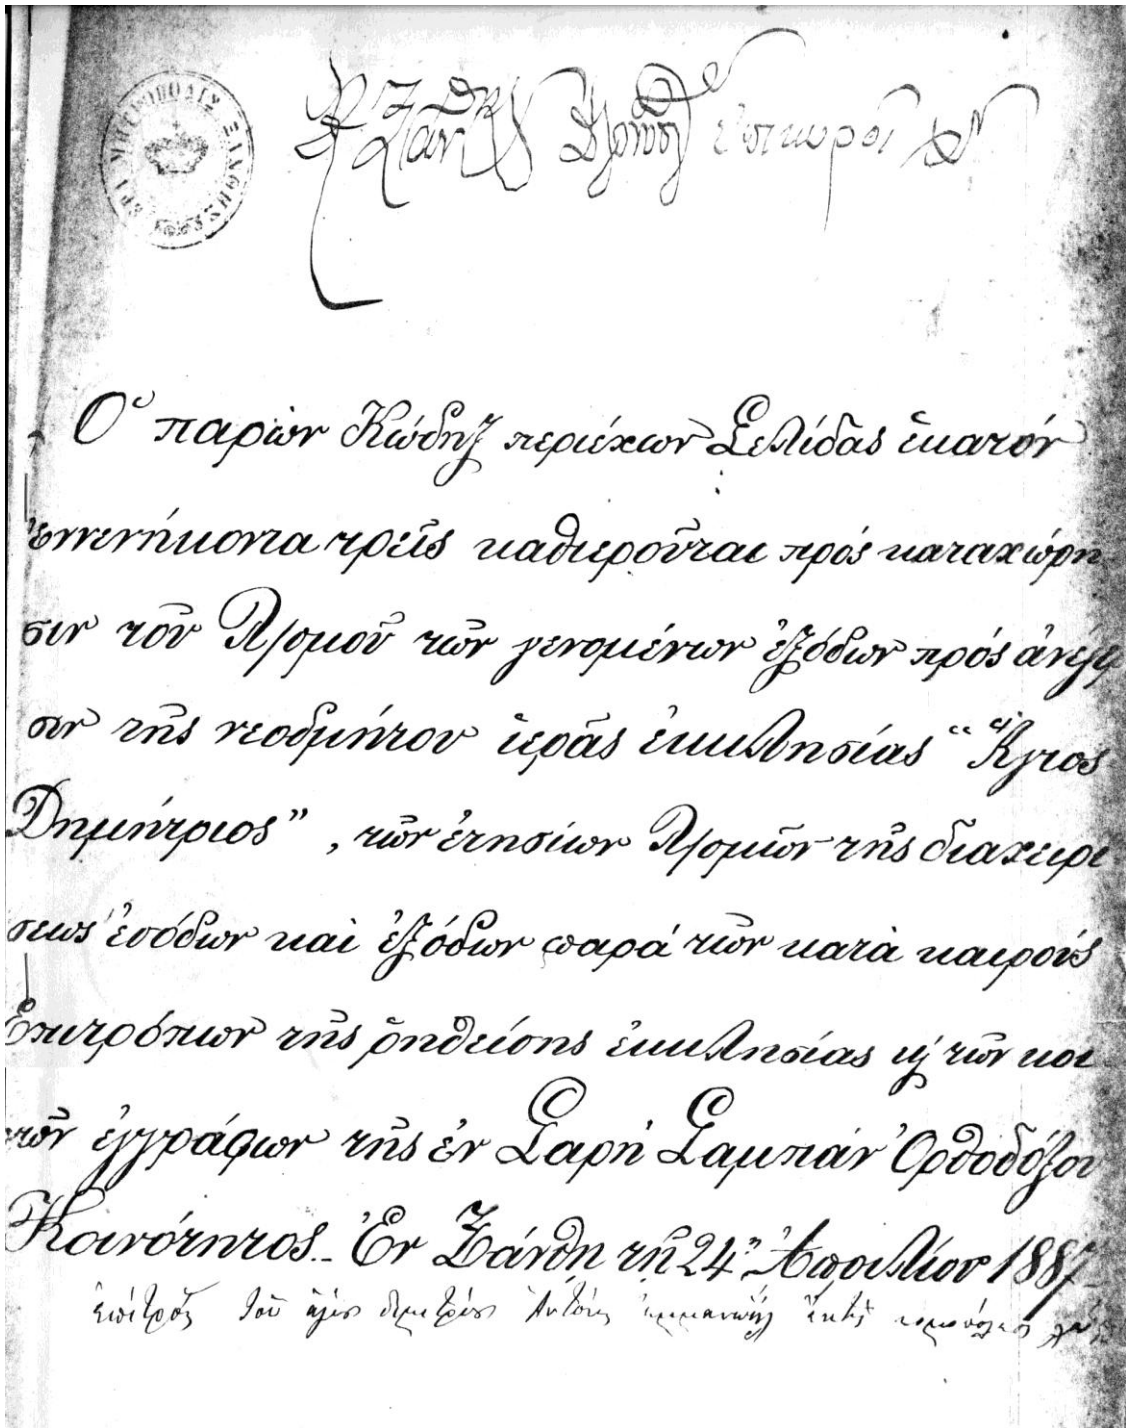 ἐπικυροῖ
Ὁ παρὼν Κώδηξ περιέχων Σελίδας ἑκατόν
ἐννενήκοντα τρεῖς καθιεροῦται πρός καταχώρη
σιν τοῦ Λ/σμοῦ τῶν γενομένων ἐξόδων πρός ἀνέγερ
σιν τῆς νεοδμήτου ἱερᾶς ἐκκλησίας "Ἅγιος
Δημήτριος", τῶν ἐτησίων Λ/σμῶν τῆς διαχειρί
σεως ἐσόδων καὶ ἐξόδων παρά τῶν κατὰ καιρούς
Ἐπιτρόπων τῆς ῥηθείσης ἐκκλησίας ϗ τῶν κοι
νῶν ἐγγράφων τῆς ἐν Σαρή Σαμπάν Ὀρθοδόξου
Κοινότητος. Ἐν Ξάνθῃ τῇ 24ῃ Ἀπριλίου 1887
τοῦ